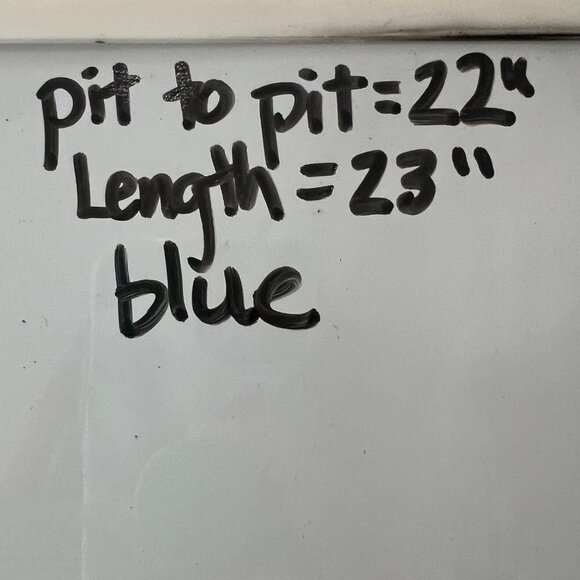 pit to pit = 22"
Length = 23"
blue